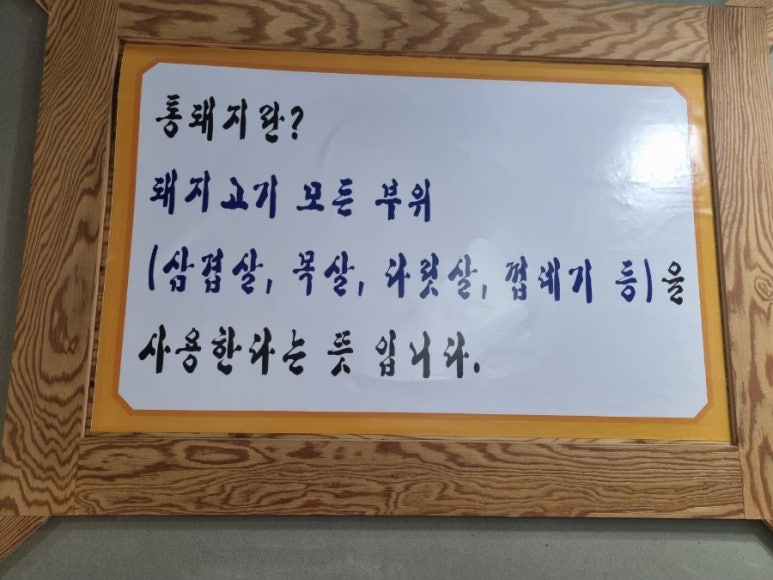 통돼지란?
돼지고기 모든 부위
(삼겹살, 목살, 다릿살, 껍데기 등)을
사용한다는 뜻 입니다.